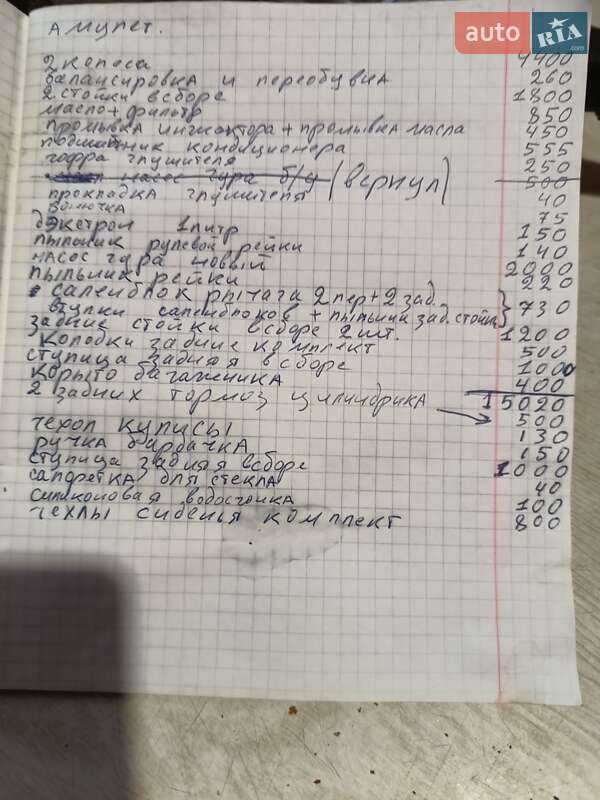 Амулет.
auto RIA.com
2 колеса 4400
балансировка и переобувка 260
2 стойки в сборе 1800
масло + фильтр 850
промывка инжиктора + промывка масла 450
подшибник кондиционера 555
гофра глушителя 250
насос гура б/у (вернул) 500
прокладка глушителя 40
вонючка 75
дэкстрон 1 литр 150
пыльник рулевой рейки 140
насос гура новый 2000
пыльник рейки 220
салейблок рычага 2 пер + 2 зад. 730
втулки салейблоков + пыльник зад. стойки
задние стойки в сборе 2 шт. 1200
колодки задние комплект 500
ступица задняя в сборе 1000
корыто багажника 400
15020
2 задних тормоз цилиндрика 500
чехол кулисы 130
ручка бардачка 150
ступица задняя в сборе 1000
салфетка для стекла 40
силиконовая водосгонка 100
чехлы сиденья комплект 800